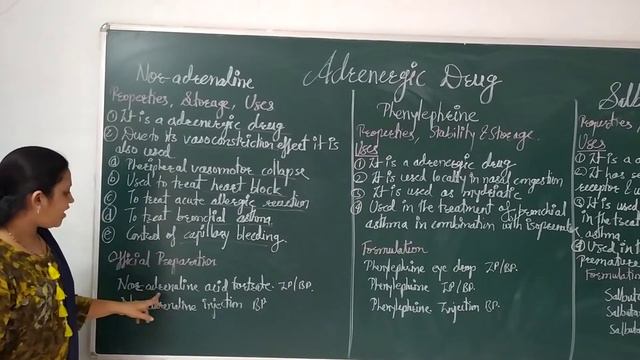 Adrenergic Drug
Nor-adrenaline
Properties, Storage, Uses
① It is a adrenergic drug
② Due to its vasoconstriction effect it is
also used
ⓐ Peripheral vasomotor collapse
ⓑ Used to treat heart block
ⓒ To treat acute allergic reaction
ⓓ To treat bronchial asthma
ⓔ Control of capillary bleeding.
Official Preparation
Nor-adrenaline acid tartrate. IP/BP.
Nor-adrenaline injection BP
Phenylephrine
Properties, Stability & Storage.
Uses
① It is a adrenergic drug
② It is used locally in nasal congestion
③ It is used as mydriatic
④ Used in the treatment of bronchial
asthma in combination with
Formulation
Phenylephrine eye drop IP/BP.
Phenylephrine IP/BP
Phenylephrine Injection BP.
Salb
Properties,
Uses
① It is a
② It has se
receptor &
③ It is used
in the treat
asthma
④ Used in t
Premature
Formulation
Salbut
Salbuta
Salbut